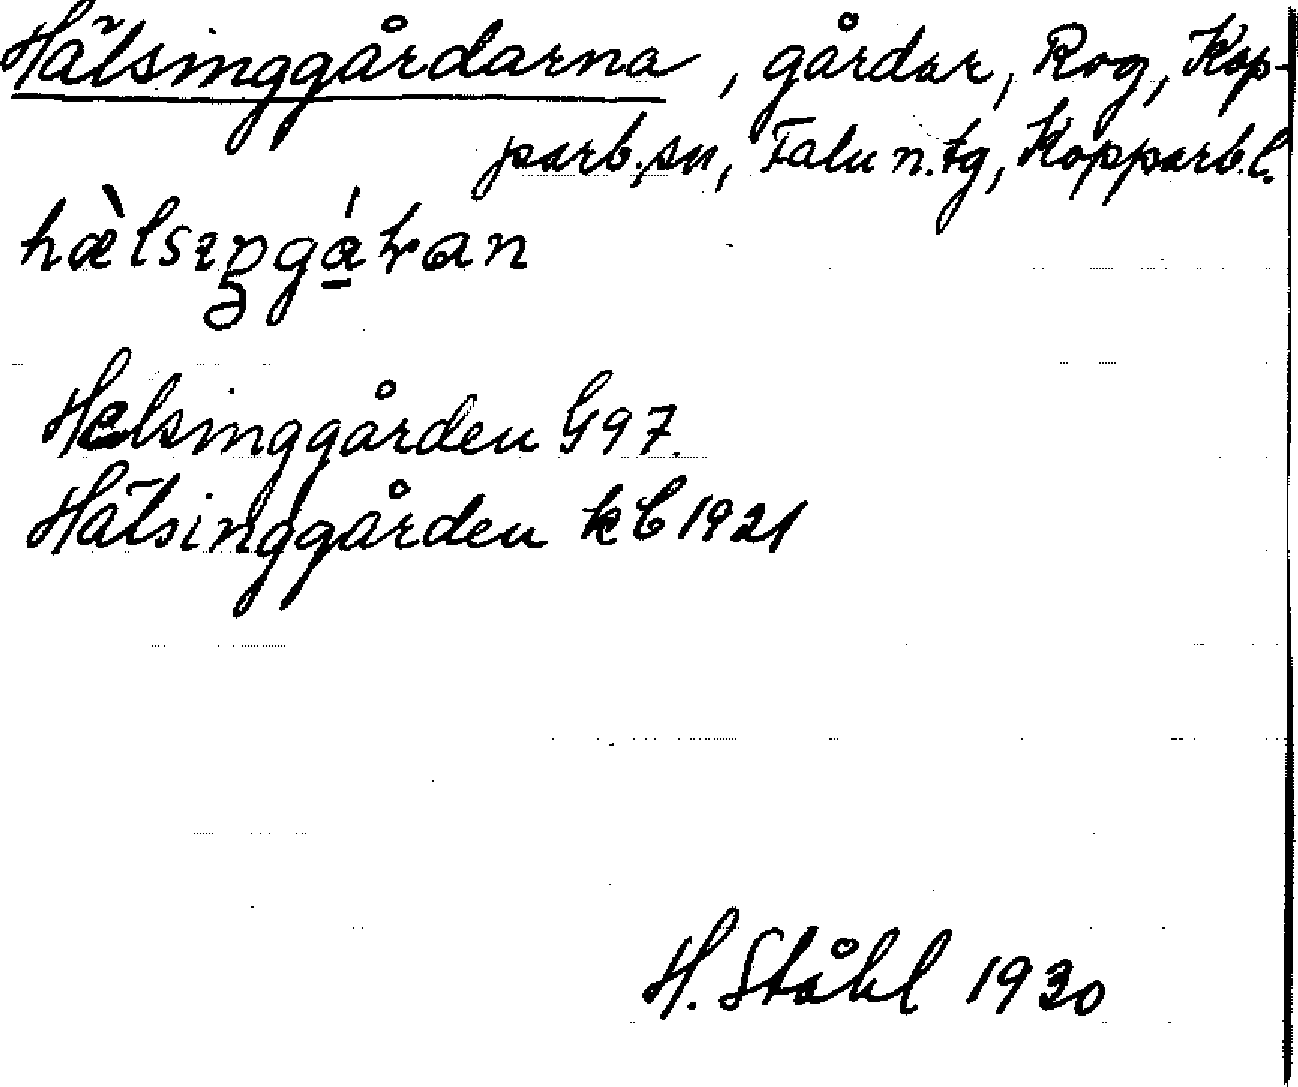 Hälsinggårdarna, gårdar, Rog, Kop-
parb. sn, Falu n. tg, Kopparb. l.
Helsinggården G97.
Hälsinggården kb 1921
H. Ståhl 1930